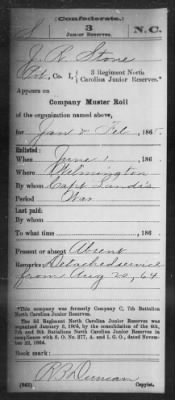 (Confederate.)
S 3 N.C.
Junior Reserves.
J. R. Stone
Pvt., Co. I, 3 Regiment North Carolina Junior Reserves.*
Appears on
Company Muster Roll
of the organization named above,
for Jan & Feb, 1865.
Enlisted:
When June 1, 186 .
Where Wilmington
By whom Capt Landis
Period War
Last paid:
By whom
To what time , 186 .
Present or absent Absent
Remarks: Detached service
from Aug 20, 64
*This company was formerly Company C, 7th Battalion
North Carolina Junior Reserves.
The 3d Regiment North Carolina Junior Reserves was
organized January 3, 1865, by the consolidation of the
7th and 8th Battalions North Carolina Junior Reserves in
compliance with S. O. No. 277, A. and I. G. O., dated November
22, 1864.
Book mark:
R B Duncan
(642) Copyist.